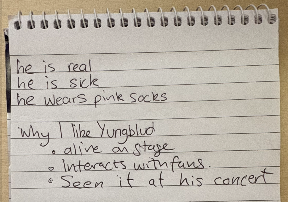 he is real
he is sick
he wears pink socks
why I like Yungblud
• alive on stage
• Interacts with fans.
• Seen it at his concert